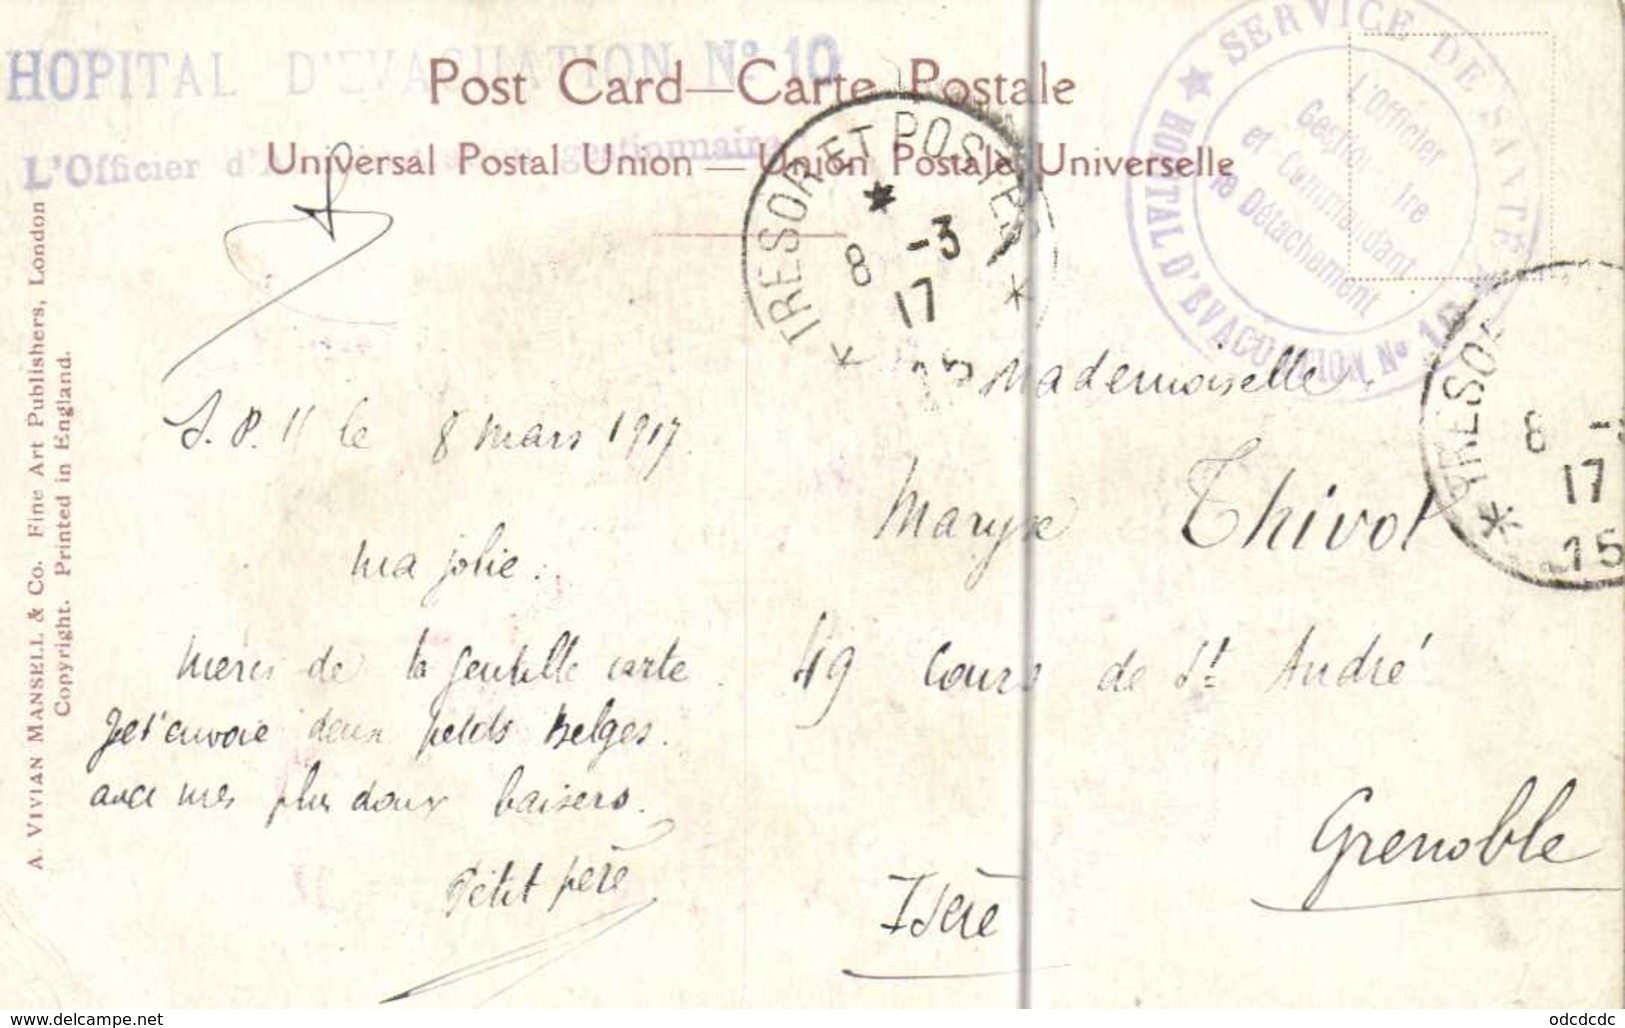 HOPITAL D'EVACUATION N° 10
Post Card—Carte Postale
L'Officier d' gestionnaire
Universal Postal Union — Union Postale Universelle
A. VIVIAN MANSELL & Co. Fine Art Publishers, London
Copyright. Printed in England.
TRESOR ET POSTES
8 -3
17
SERVICE DE SANTÉ
HOPITAL D'EVACUATION N° 10
L'Officier
Gestionnaire
et Commandant
le Détachement
TRESOR
8 -3
17
15
S. P. 11 le 8 mars 1917.
ma jolie.
merci de ta gentille carte.
Je t'envoie deux petits Belges.
avec mes plus doux baisers.
Petit père
Mademoiselle
Maryse Thivol
49 Cours de St André
Grenoble
Isère
delcampe.net
odcdcdc